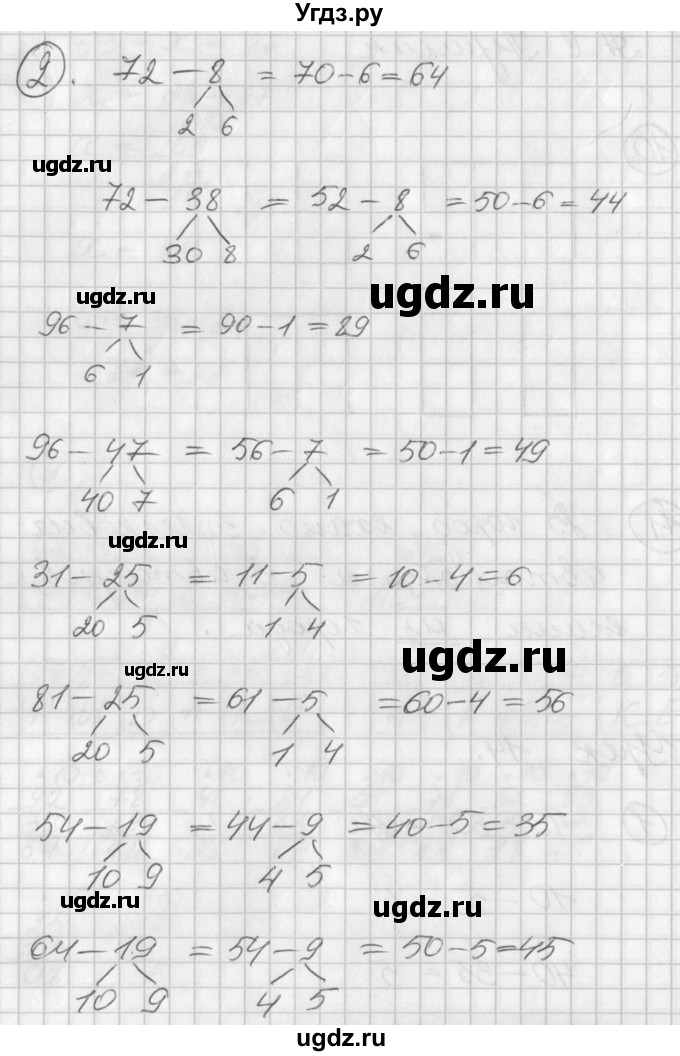 Угдз.ру
2. 72 – 8 = 70 – 6 = 64
2 6
ugdz.ru
72 – 38 = 52 – 8 = 50 – 6 = 44
30 8 2 6
ugdz.ru ugdz.ru
96 – 7 = 90 – 1 = 89
6 1
96 – 47 = 56 – 7 = 50 – 1 = 49
40 7 6 1
ugdz.ru
31 – 25 = 11 – 5 = 10 – 4 = 6
20 5 1 4
ugdz.ru ugdz.ru
81 – 25 = 61 – 5 = 60 – 4 = 56
20 5 1 4
54 – 19 = 44 – 9 = 40 – 5 = 35
10 9 4 5
ugdz.ru ugdz.ru
64 – 19 = 54 – 9 = 50 – 5 = 45
10 9 4 5
ugdz.ru